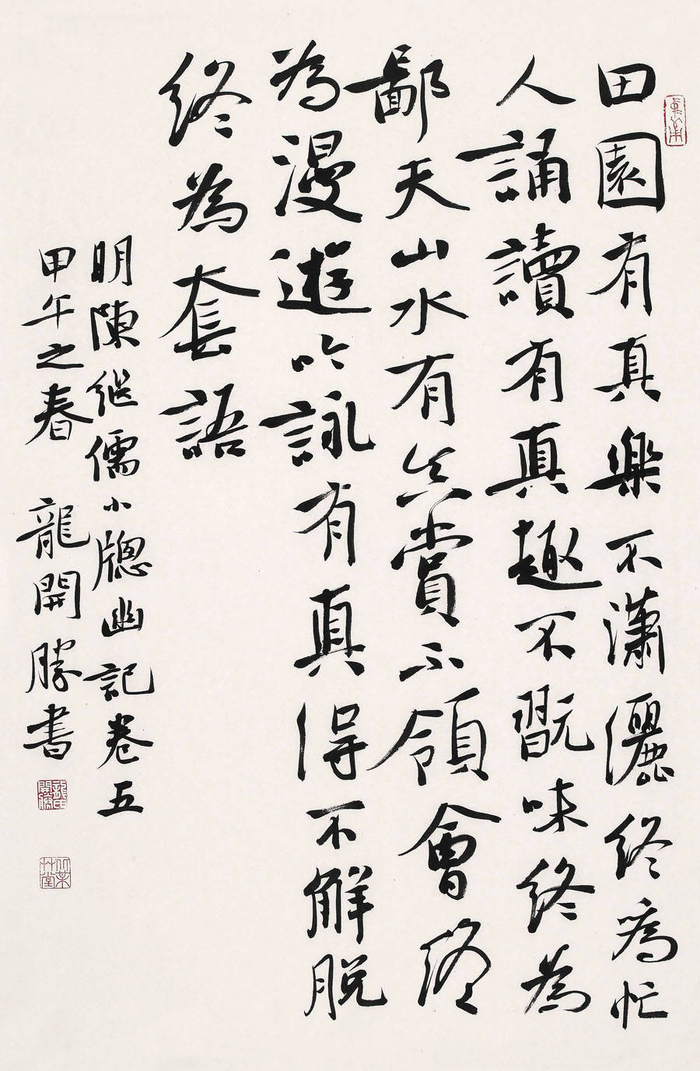 田園有真樂不瀟灑終為忙
人誦讀有真趣不翫味終為
鄙夫山水有真賞不領會終
為漫遊吟詠有真得不解脫
終為套語
明陳継儒小牕幽記卷五
甲午之春 龍開勝書